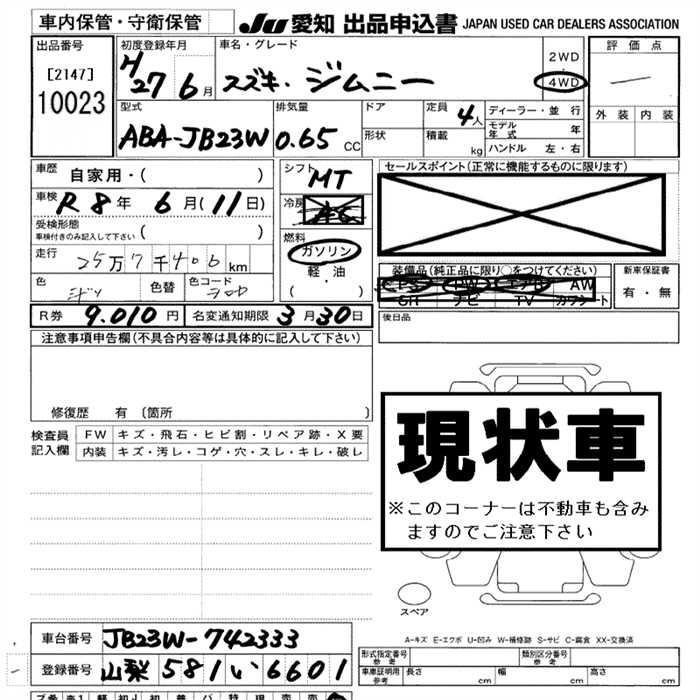 車内保管・守衛保管
JU 愛知 出品申込書 JAPAN USED CAR DEALERS ASSOCIATION
出品番号
[2147]
10023
初度登録年月
H 27 6月
車名・グレード
スズキ・ジムニー
2WD
・
4WD
評価点
外装 内装
型式
ABA-JB23W
排気量
0.65 CC
ドア
形状
定員 4人
積載 kg
ディーラー・並行
モデル年式 年
ハンドル 左・右
車歴 自家用・( )
車検 R 8年 6月(11日)
受検形態
車検付きのみ記入して下さい ( )
走行 25万7千400km
色
色替
色コード
シフト
MT
冷房
AC
燃料
ガソリン
・
軽・油
( )
セールスポイント(正常に機能するものに限ります)
装備品(純正品に限り○をつけてください)
PS PW エアB AW
SR ナビ TV カワシート
新車保証書
有・無
R券 9.010円 名変通知期限 3月30日
後日品
注意事項申告欄(不具合内容等は具体的に記入して下さい)
修復歴 有 〔箇所 〕
検査員記入欄
FW キズ・飛石・ヒビ割・リペア跡・X要
内装 キズ・汚レ・コゲ・穴・スレ・キレ・破レ
現状車
※このコーナーは不動車も含み
ますのでご注意下さい
スペア
A-キズ E-エクボ U-凹み W-補修跡 S-サビ C-腐食 XX-交換済
車台番号 JB23W-742333
登録番号 山梨 581 い 6601
型式指定番号
参考
類別区分番号
参考
車庫証明用
参考
長さ cm 幅 cm 高さ cm